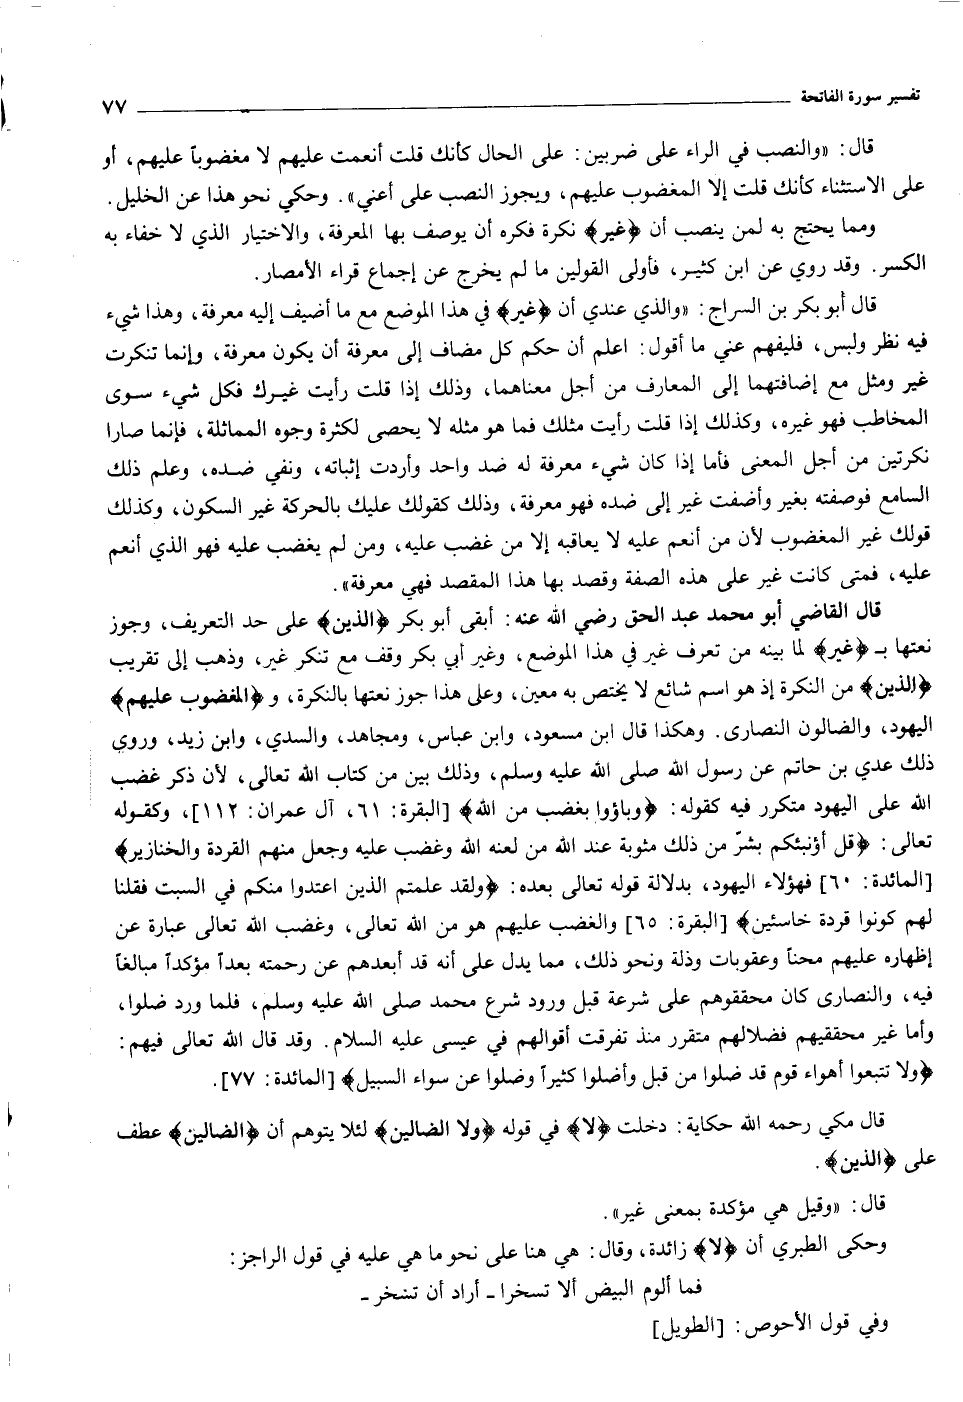 تفسير سورة الفاتحة ٧٧
قال: «والنصب في الراء على ضربين: على الحال كأنك قلت أنعمت عليهم لا مغضوباً عليهم، أو
على الاستثناء كأنك قلت إلا المغضوب عليهم، ويجوز النصب على أعني». وحكي نحو هذا عن الخليل.
ومما يحتج به لمن ينصب أن ﴿غير﴾ نكرة فكره أن يوصف بها المعرفة، والاختيار الذي لا خفاء به
الكسر. وقد روي عن ابن كثير، فأولى القولين ما لم يخرج عن إجماع قراء الأمصار.
قال أبو بكر بن السراج: «والذي عندي أن ﴿غير﴾ في هذا الموضع مع ما أضيف إليه معرفة، وهذا شيء
فيه نظر ولبس، فليفهم عني ما أقول: اعلم أن حكم كل مضاف إلى معرفة أن يكون معرفة، وإنما تنكرت
غير ومثل مع إضافتهما إلى المعارف من أجل معناهما، وذلك إذا قلت رأيت غيرك فكل شيء سوى
المخاطب فهو غيره، وكذلك إذا قلت رأيت مثلك فما هو مثله لا يحصى لكثرة وجوه المماثلة، فإنما صارا
نكرتين من أجل المعنى فأما إذا كان شيء معرفة له ضد واحد وأردت إثباته، ونفي ضده، وعلم ذلك
السامع فوصفته بغير وأضفت غير إلى ضده فهو معرفة، وذلك كقولك عليك بالحركة غير السكون، وكذلك
قولك غير المغضوب لأن من أنعم عليه لا يعاقبه إلا من غضب عليه، ومن لم يغضب عليه فهو الذي أنعم
عليه، فمتى كانت غير على هذه الصفة وقصد بها هذا المقصد فهي معرفة».
قال القاضي أبو محمد عبد الحق رضي الله عنه: أبقى أبو بكر ﴿الذين﴾ على حد التعريف، وجوز
نعتها بـ ﴿غير﴾ لما بينه من تعرف غير في هذا الموضع، وغير أبي بكر وقف مع تنكر غير، وذهب إلى تقريب
﴿الذين﴾ من النكرة إذ هو اسم شائع لا يختص به معين، وعلى هذا جوز نعتها بالنكرة، و ﴿المغضوب عليهم﴾
اليهود، والضالون النصارى. وهكذا قال ابن مسعود، وابن عباس، ومجاهد، والسدي، وابن زيد، وروي
ذلك عدي بن حاتم عن رسول الله صلى الله عليه وسلم، وذلك بين من كتاب الله تعالى، لأن ذكر غضب
الله على اليهود متكرر فيه كقوله: ﴿وباؤوا بغضب من الله﴾ [البقرة: ٦١، آل عمران: ١١٢]، وكقوله
تعالى: ﴿قل أؤنبئكم بشرّ من ذلك مثوبة عند الله من لعنه الله وغضب عليه وجعل منهم القردة والخنازير﴾
[المائدة: ٦٠] فهؤلاء اليهود، بدلالة قوله تعالى بعده: ﴿ولقد علمتم الذين اعتدوا منكم في السبت فقلنا
لهم كونوا قردة خاسئين﴾ [البقرة: ٦٥] والغضب عليهم هو من الله تعالى، وغضب الله تعالى عبارة عن
إظهاره عليهم محناً وعقوبات وذلة ونحو ذلك، مما يدل على أنه قد أبعدهم عن رحمته بعداً مؤكداً مبالغاً
فيه، والنصارى كان محققوهم على شرعة قبل ورود شرع محمد صلى الله عليه وسلم، فلما ورد ضلوا،
وأما غير محققيهم فضلالهم متقرر منذ تفرقت أقوالهم في عيسى عليه السلام. وقد قال الله تعالى فيهم:
﴿ولا تتبعوا أهواء قوم قد ضلوا من قبل وأضلوا كثيراً وضلوا عن سواء السبيل﴾ [المائدة: ٧٧].
قال مكي رحمه الله حكاية: دخلت ﴿لا﴾ في قوله ﴿ولا الضالين﴾ لئلا يتوهم أن ﴿الضالين﴾ عطف
على ﴿الذين﴾.
قال: «وقيل هي مؤكدة بمعنى غير».
وحكى الطبري أن ﴿لا﴾ زائدة، وقال: هي هنا على نحو ما هي عليه في قول الراجز:
فما ألوم البيض ألا تسخرا ـ أراد أن تسخر ـ
وفي قول الأحوص: [الطويل]